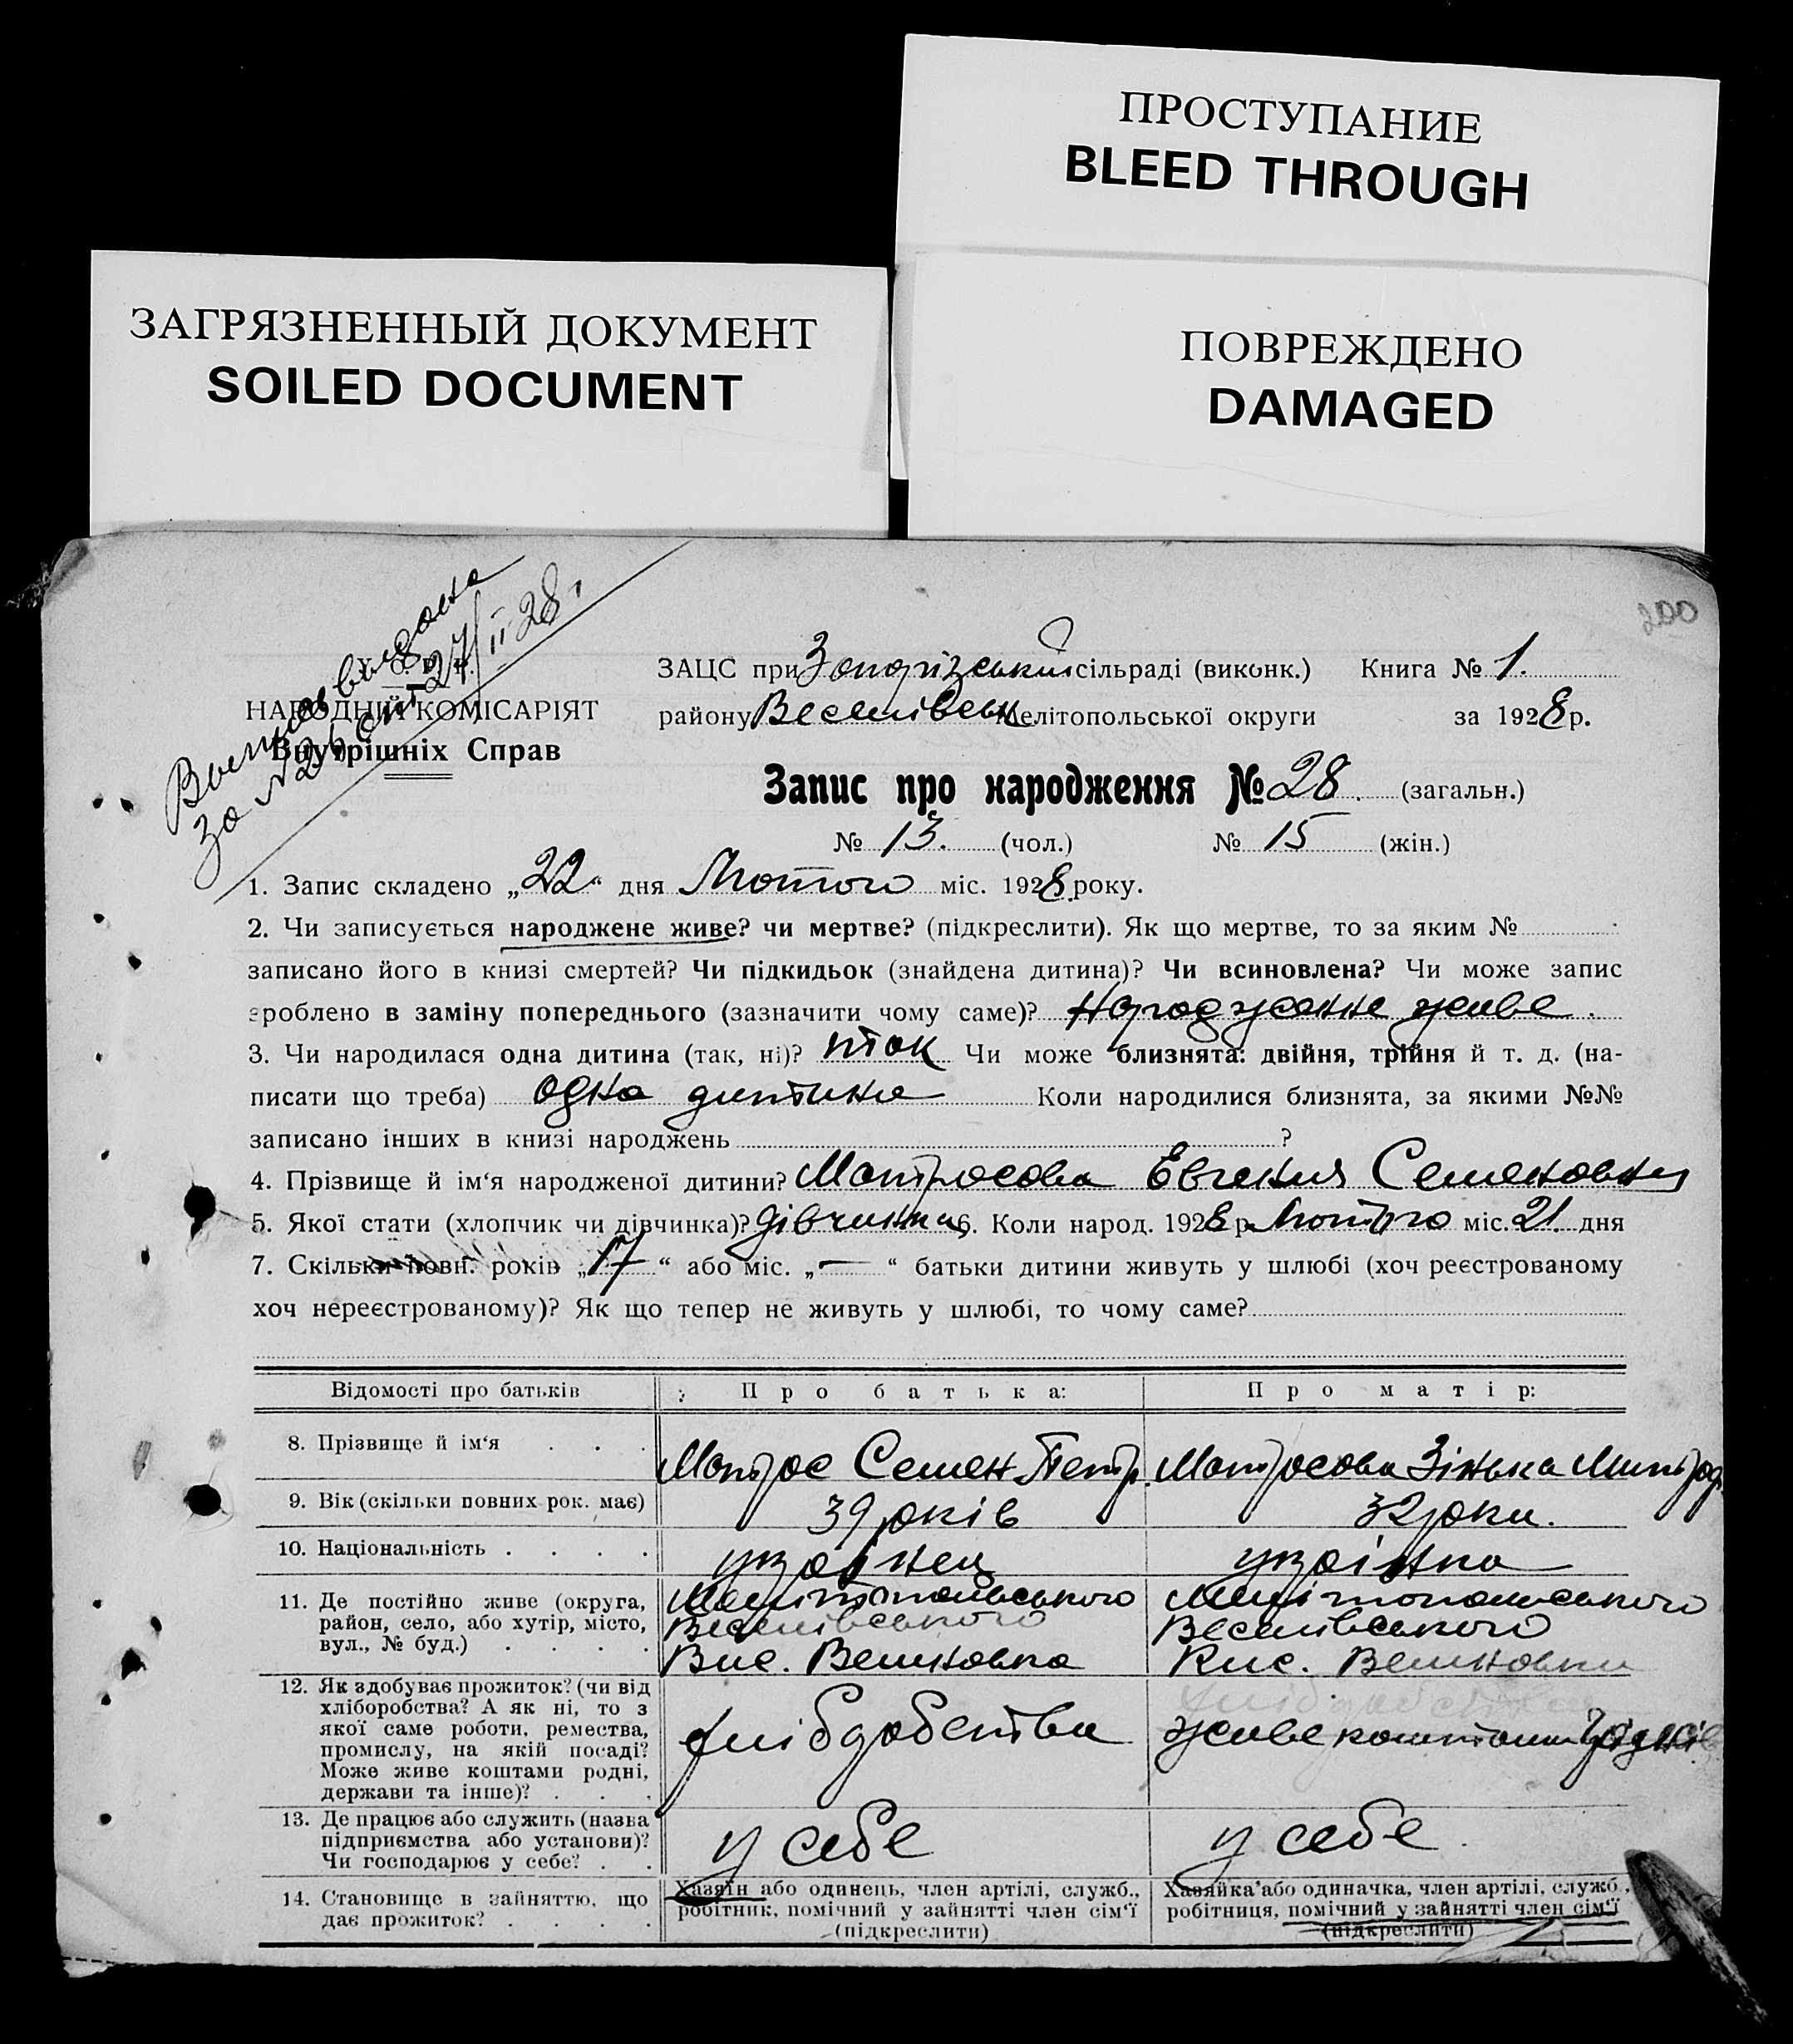 ПРОСТУПАНИЕ
BLEED THROUGH
ЗАГРЯЗНЕННЫЙ ДОКУМЕНТ
SOILED DOCUMENT
ПОВРЕЖДЕНО
DAMAGED
200
27/II 28
НАРОДНИЙ КОМІСАРІЯТ
Внутрішніх Справ
ЗАЦС при Запорізській сільраді (виконк.) Книга № 1.
району Веселівськ Мелітопольської округи за 1928 р.
Запис про народження № 28. (загальн.)
№ 13. (чол.) № 15 (жін.)
1. Запис складено „22“ дня Лютого міс. 1928 року.
2. Чи записується народжене живе? чи мертве? (підкреслити). Як що мертве, то за яким №
записано його в книзі смертей? Чи підкидьок (знайдена дитина)? Чи всиновлена? Чи може запис
зроблено в заміну попереднього (зазначити чому саме)? Народжене живе.
3. Чи народилася одна дитина (так, ні)? так Чи може близнята: двійня, трійня й т. д. (на-
писати що треба) одна дитина Коли народилися близнята, за якими №№
записано інших в книзі народжень ?
4. Прізвище й ім‘я народженої дитини? Матросова Евгения Семеновна
5. Якої стати (хлопчик чи дівчинка)? дівчинка 6. Коли народ. 1928 р. Лютого міс. 21. дня
7. Скільки повн. років „17“ або міс. „—“ батьки дитини живуть у шлюбі (хоч реєстрованому
хоч нереєстрованому)? Як що тепер не живуть у шлюбі, то чому саме?
Відомості про батьків Про батька: Про матір:
8. Прізвище й ім‘я . . . Матрос Семен Петр. Матросова Зінька Митрод.
9. Вік (скільки повних рок. має) 39 років 32 роки.
10. Національність . . . . україн­ец українка
11. Де постійно живе (округа,
район, село, або хутір, місто,
вул., № буд.) . . . .
Мелітопольського
Веселівського
Вис. Велиновка
Мелітопольського
Веселівського
Вис. Велиновки
12. Як здобуває прожиток? (чи від
хліборобства? А як ні, то з
якої саме роботи, ремества,
промислу, на якій посаді?
Може живе коштами родні,
держави та інше)? . . .
хлібробства
живе коштами рідні
13. Де працює або служить (назва
підприємства або установи)?
Чи господарює у себе? . .
у себе
у себе.
14. Становище в зайняттю, що
дає прожиток? . . . .
Хазяїн або одинець, член артілі, служб.,
робітник, помічний у зайнятті член сім‘ї
(підкреслити)
Хазяйка або одиначка, член артілі, служб.,
робітниця, помічний у зайнятті член сім‘ї
(підкреслити)